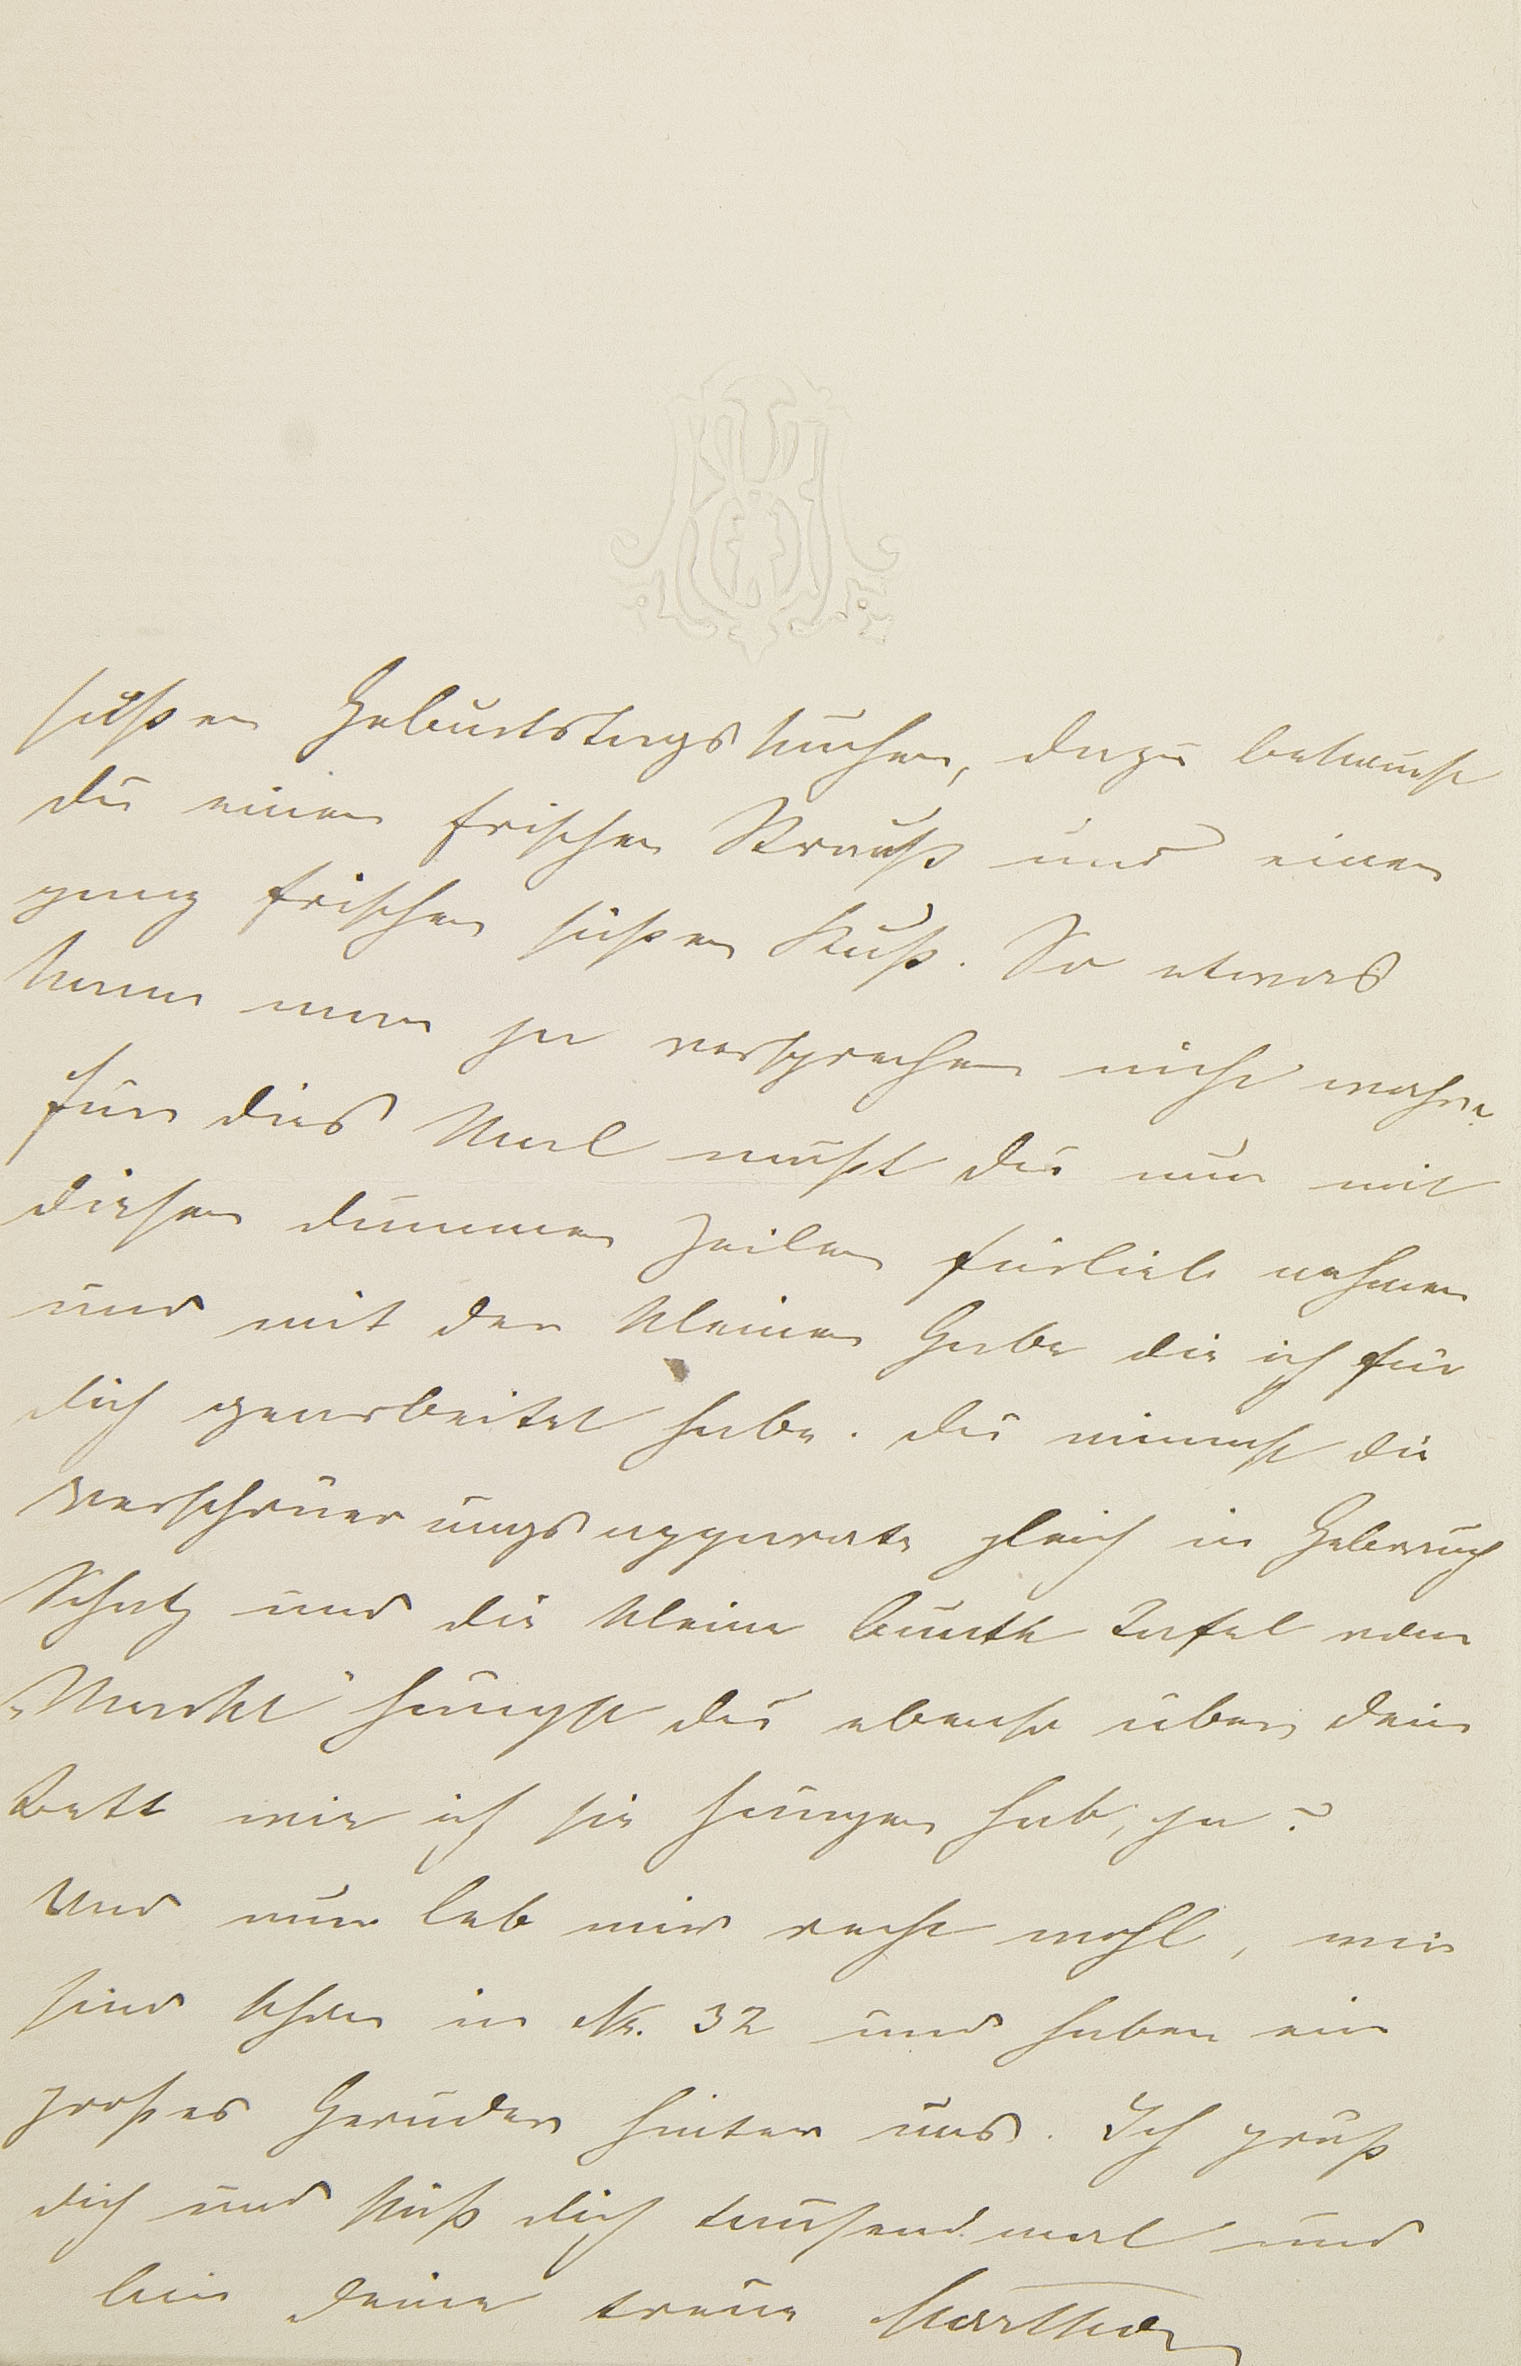 süßen Geburtstagskuchen, dazu bekomst
du einen frischen Strauß und einen
ganz frischen süßen Kuß. So etwas
kann man ja versprechen nicht wahr?
für dies Mal mußt du nun mit
diesen dummen Zeilen fürlieb nehmen
und mit der kleinen Gabe die ich für
dich gearbeitet habe. du nimmst die
Verschönerungsapparate gleich in Gebrauch
Schatz und die kleine bunte Tafel von
hängst du ebenso über dein
Bett wie ich sie hängen hab, ja?
Und nun leb mir recht wohl, wir
sind schon in Nr. 32 und haben ein
großes hinter uns. Ich grüß
dich und küß dich tausendmal und
bin deine treue Martha